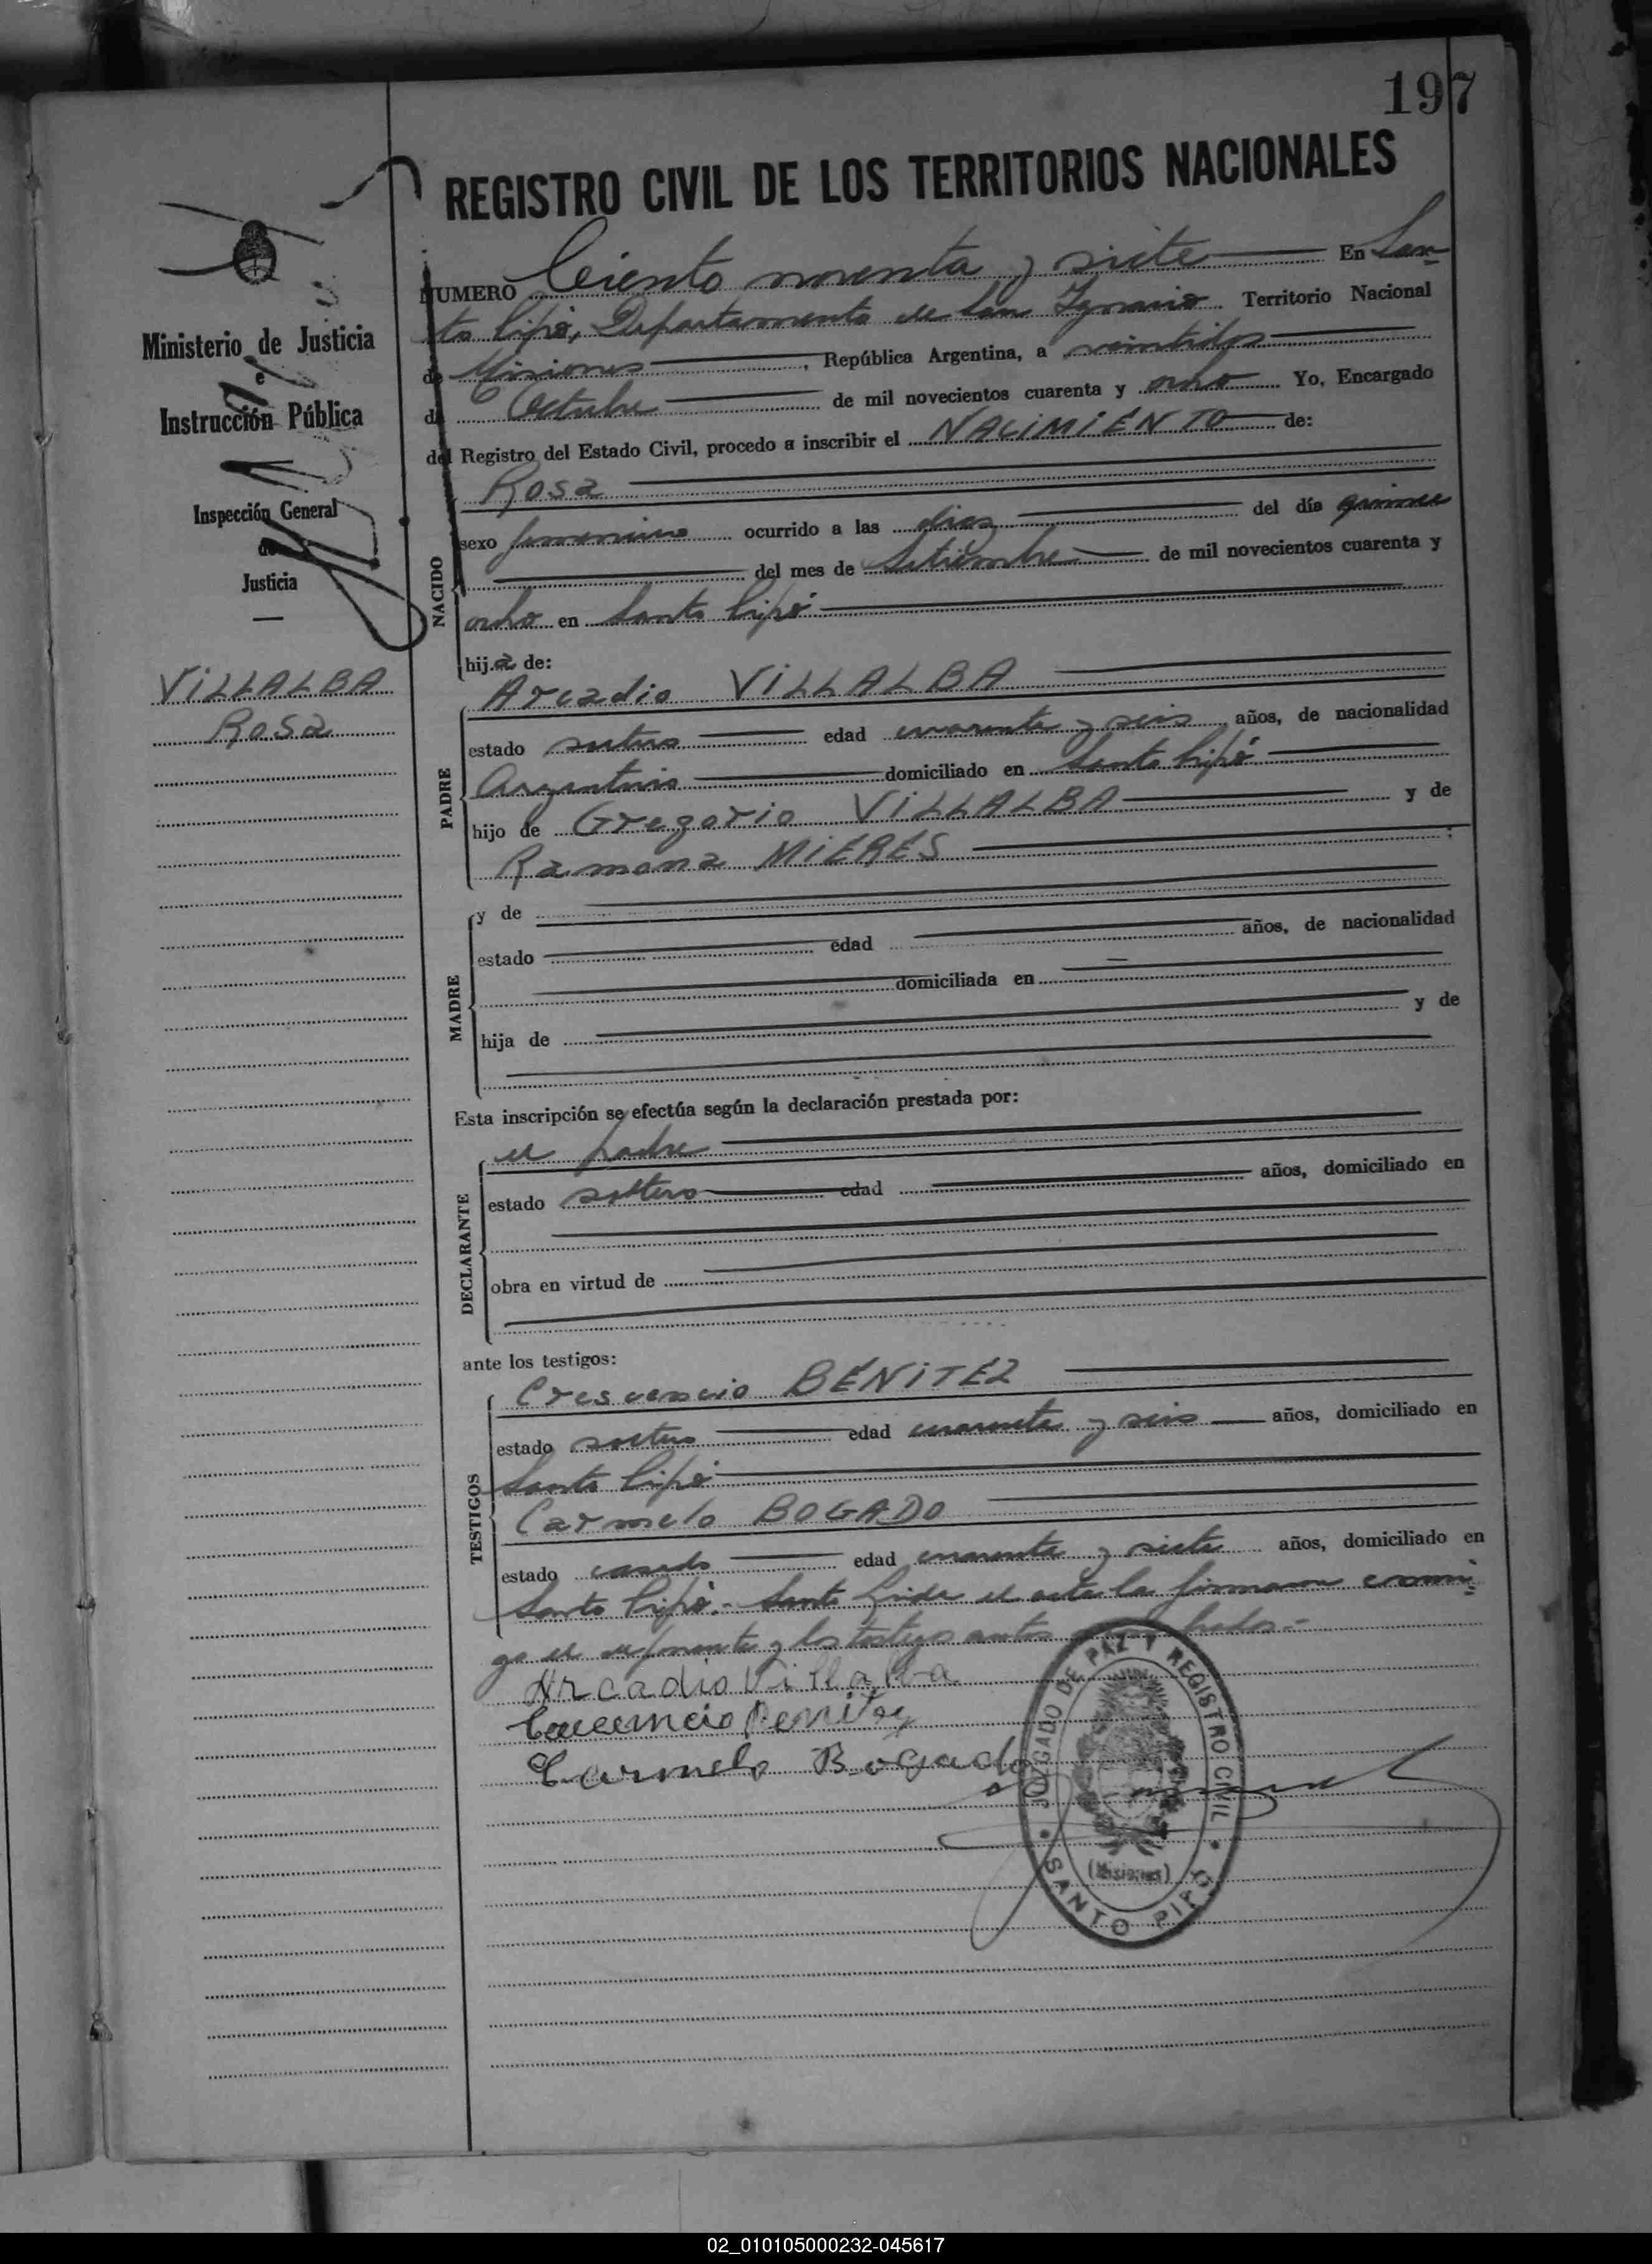 197
REGISTRO CIVIL DE LOS TERRITORIOS NACIONALES
Ministerio de Justicia
e
Instrucción Pública
Inspección General
de
Justicia
VILLALBA
Rosa
NUMERO Ciento noventa y siete En San-
to Pipó, Departamento de San Ignacio Territorio Nacional
de Misiones, República Argentina, a veintidos
de Octubre de mil novecientos cuarenta y ocho Yo, Encargado
del Registro del Estado Civil, procedo a inscribir el NACIMIENTO de:
NACIDO
Rosa
sexo femenino ocurrido a las diez del día quince
del mes de Setiembre de mil novecientos cuarenta y
ocho en Santo Pipó
hija de:
PADRE
Arcadio VILLALBA
estado soltero edad cuarenta y seis años, de nacionalidad
Argentino domiciliado en Santo Pipó
hijo de Gregorio VILLALBA y de
Ramona MIERES ;
MADRE
y de
estado edad años, de nacionalidad
domiciliada en
hija de y de
Esta inscripción se efectúa según la declaración prestada por:
DECLARANTE
el padre
estado soltero edad años, domiciliado en
obra en virtud de
ante los testigos:
TESTIGOS
Crescencio BENITEZ
estado soltero edad cuarenta y seis años, domiciliado en
Santo Pipó
Carmelo BOGADO
estado casado edad cuarenta y siete años, domiciliado en
Santo Pipó.- el acta la firmaron conmi-
go el exponente y los testigos
Arcadio Villalba
Benitez
Carmelo Bogado
JUZGADO DE PAZ Y REGISTRO CIVIL
(Misiones)
SANTO PIPÓ
02_010105000232-045617